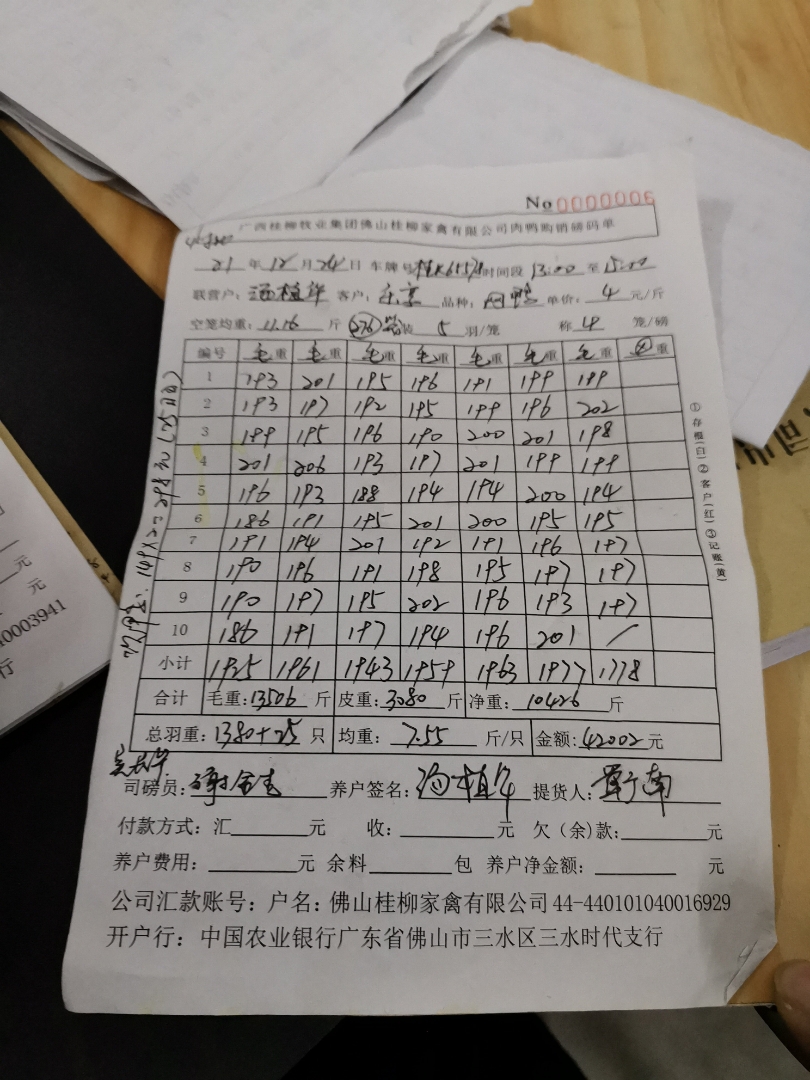 No 0000006
广西桂柳牧业集团佛山桂柳家禽有限公司肉鸭购销磅码单
21 年 12 月 24 日 车牌号 时间段 13:00 至 15:00
联营户: 客户: 品种: 鸭 单价: 4 元/斤
空笼均重: 11.16 斤 276 装 5 羽/笼 称 4 笼/磅
编号 毛重 毛重 毛重 毛重 毛重 毛重 毛重 重
1 193 201 195 196 191 199 189
2 193 197 192 195 199 196 202
3 199 195 196 190 200 201 198
4 201 206 193 197 201 199 199
5 196 193 188 194 194 200 194
6 186 191 195 201 200 195 195
7 191 194 201 192 191 196 197
8 190 196 191 198 195 197 197
9 190 197 195 202 196 193 197
10 186 191 197 194 196 201 /
小计 1925 1961 1943 1959 1963 1977 1778
合计 毛重: 13506 斤 皮重: 3080 斤 净重: 10426 斤
总羽重: 1380+25 只 均重: 7.55 斤/只 金额: 42002 元
司磅员: 养户签名: 提货人:
付款方式: 汇 元 收: 元 欠(余)款: 元
养户费用: 元 余料 包 养户净金额: 元
公司汇款账号: 户名: 佛山桂柳家禽有限公司 44-440101040016929
开户行: 中国农业银行广东省佛山市三水区三水时代支行
①存根(白)②客户(红)③记账(黄)
元
元
元
0003941
行